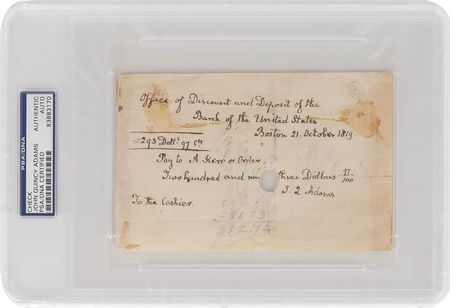 PSA/DNA
CHECK
JOHN QUINCY ADAMS
PSA/DNA CERTIFIED
AUTHENTIC
AUTO
83863170
Office of Discount and Deposit of the
Bank of the United States
Boston 21. October 1819.
293 Doll.s 97 Cts
Pay to A Herr or Order.
Two hundred and nine three Dollars 97/100
J. Q. Adams
To the Cashier.